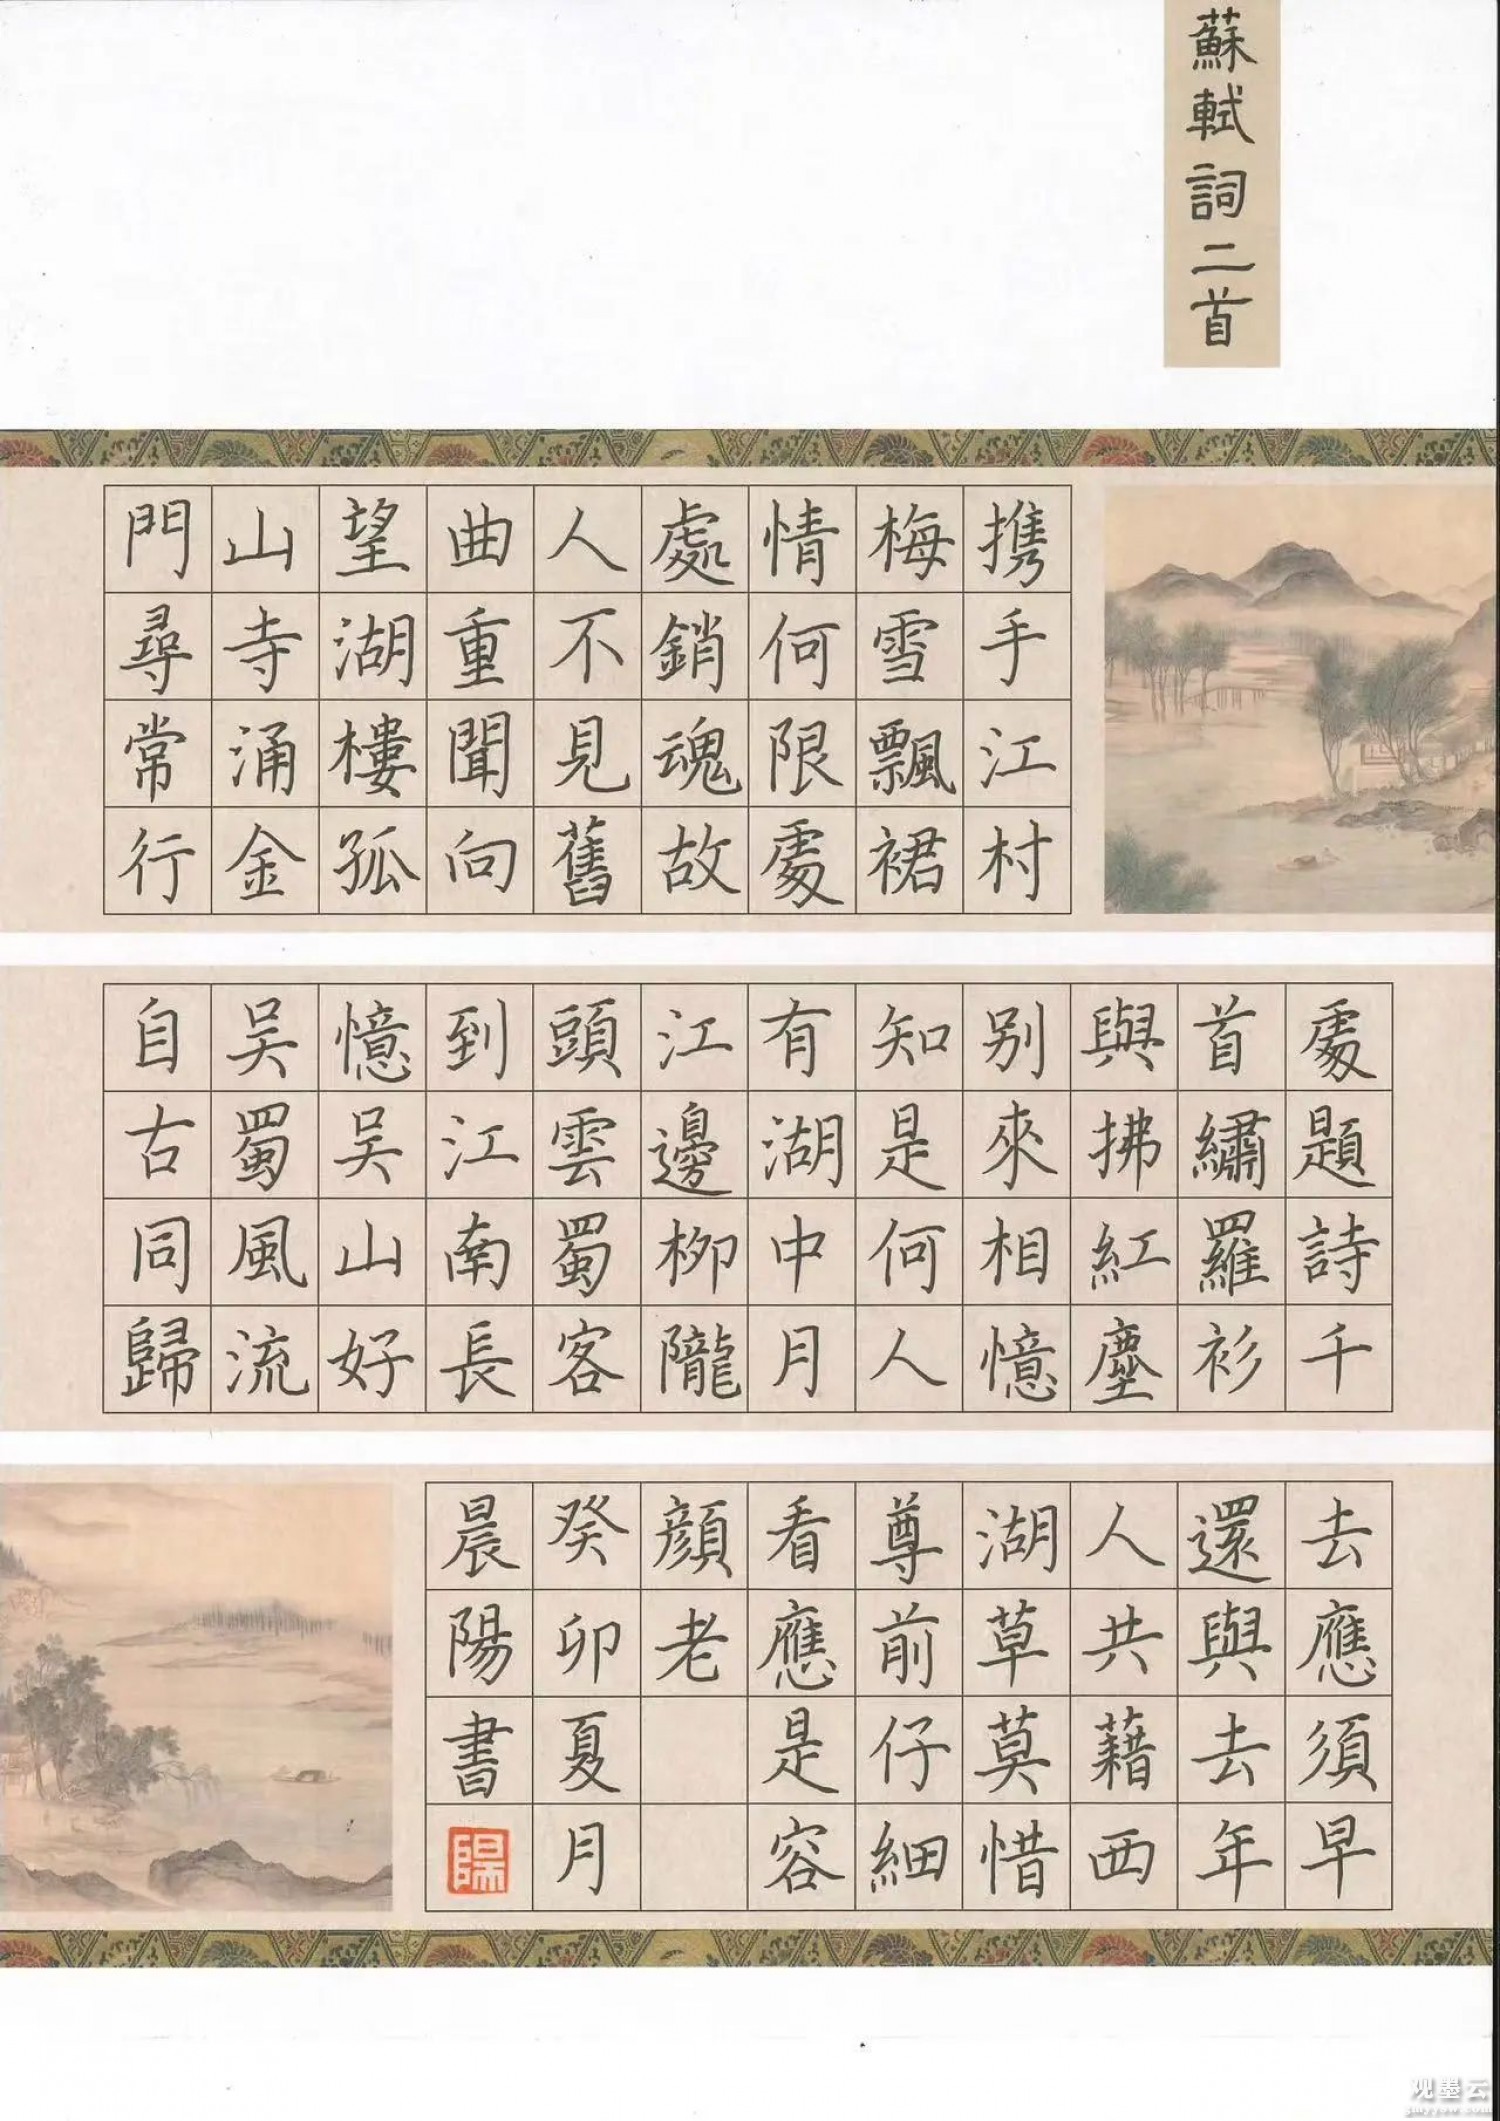 蘇軾詞二首
携手江村
梅雪飄裙
情何限處
處銷魂故
人不見舊
曲重聞向
望湖樓孤
山寺涌金
門尋常行
處題詩千
首繡羅衫
與拂紅塵
别來相憶
知是何人
有湖中月
江邊柳隴
頭雲蜀客
到江南長
憶吴山好
吴蜀風流
自古同歸
去應須早
還與去年
人共藉西
湖草莫惜
尊前仔細
看應是容
顔老
癸卯夏月
晨陽書
陽
观墨云
gmyyow.com